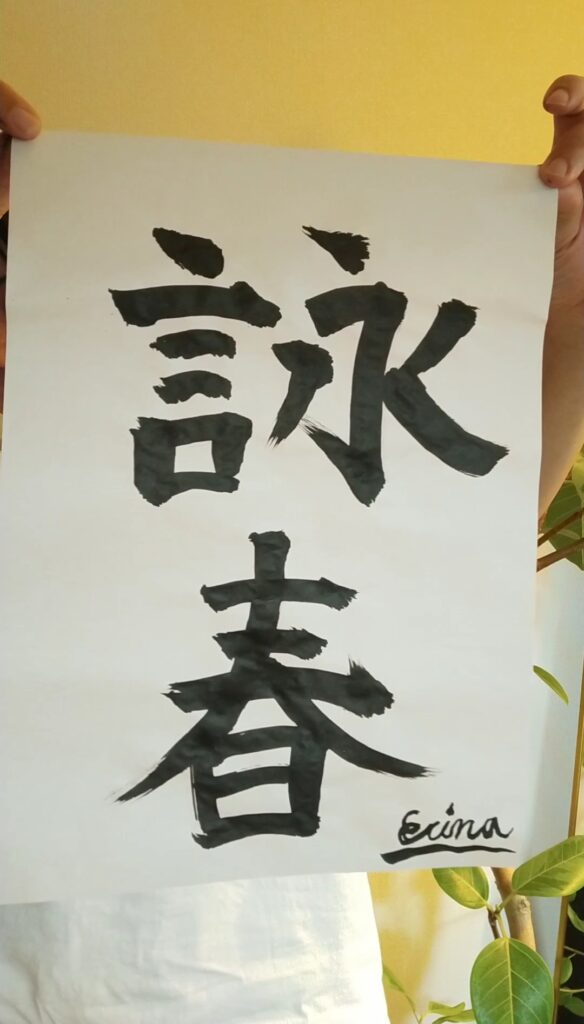 詠
春
Erina